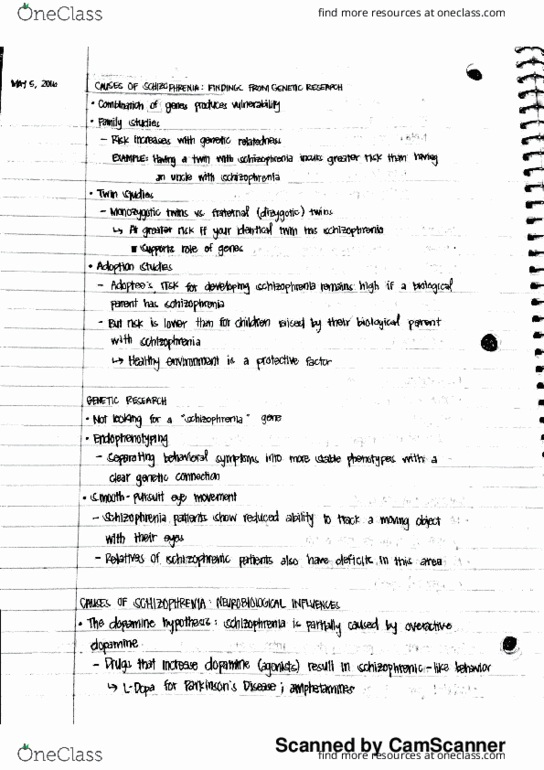 OneClass
find more resources at oneclass.com
MAY 5, 2016
CAUSES OF SCHIZOPHRENIA: FINDINGS FROM GENETIC RESEARCH
• Combination of genes produces vulnerability
• Family studies
– Risk increases with genetic relatedness
EXAMPLE: Having a twin with schizophrenia incurs greater risk than having
an uncle with schizophrenia
• Twin studies
– Monozygotic twins vs fraternal (dizygotic) twins
↳ At greater risk if your identical twin has schizophrenia
■ Supports role of genes
• Adoption studies
– Adoptee's risk for developing schizophrenia remains high if a biological
parent has schizophrenia
– But risk is lower than for children raised by their biological parent
with schizophrenia
↳ Healthy environment is a protective factor
GENETIC RESEARCH
• Not looking for a "schizophrenia" gene
• Endophenotyping
– Separating behavioral symptoms into more stable phenotypes with a
clear genetic connection
• Smooth-pursuit eye movement
– Schizophrenia patients show reduced ability to track a moving object
with their eyes
– Relatives of schizophrenic patients also have deficits in this area
CAUSES OF SCHIZOPHRENIA: NEUROBIOLOGICAL INFLUENCES
• The dopamine hypothesis: schizophrenia is partially caused by overactive
dopamine
– Drugs that increase dopamine (agonists) result in schizophrenic-like behavior
↳ L-Dopa for Parkinson's Disease; amphetamines
Scanned by CamScanner
OneClass
find more resources at oneclass.com